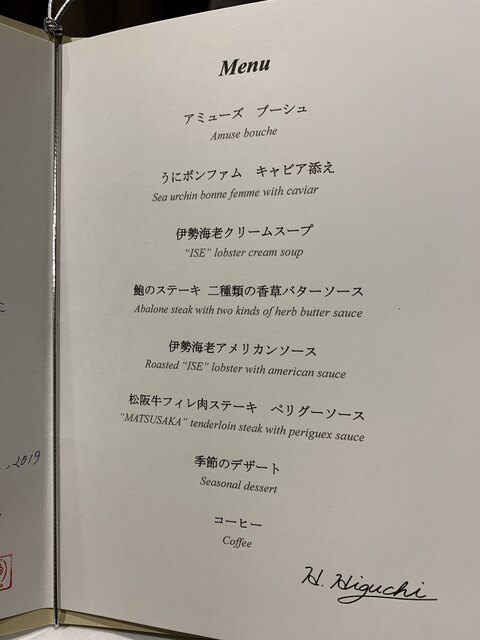 Menu
アミューズ ブーシュ
Amuse bouche
うにボンファム キャビア添え
Sea urchin bonne femme with caviar
伊勢海老クリームスープ
“ISE” lobster cream soup
鮑のステーキ 二種類の香草バターソース
Abalone steak with two kinds of herb butter sauce
伊勢海老アメリカンソース
Roasted “ISE” lobster with american sauce
松阪牛フィレ肉ステーキ ペリグーソース
“MATSUSAKA” tenderloin steak with periguex sauce
季節のデザート
Seasonal dessert
コーヒー
Coffee
H. Higuchi
, 2019